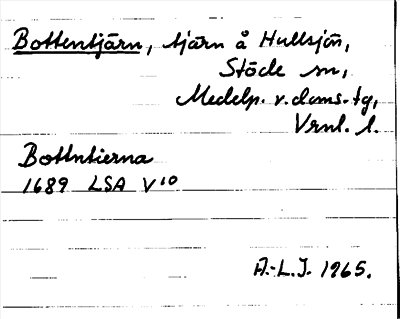 Bottentjärn, tjärn å Hullsjön,
Stöde sn,
Medelp. v. doms.-tg,
Vrnl. l.
Bottntierna
1689 LSA V10
A.-L.J. 1965.